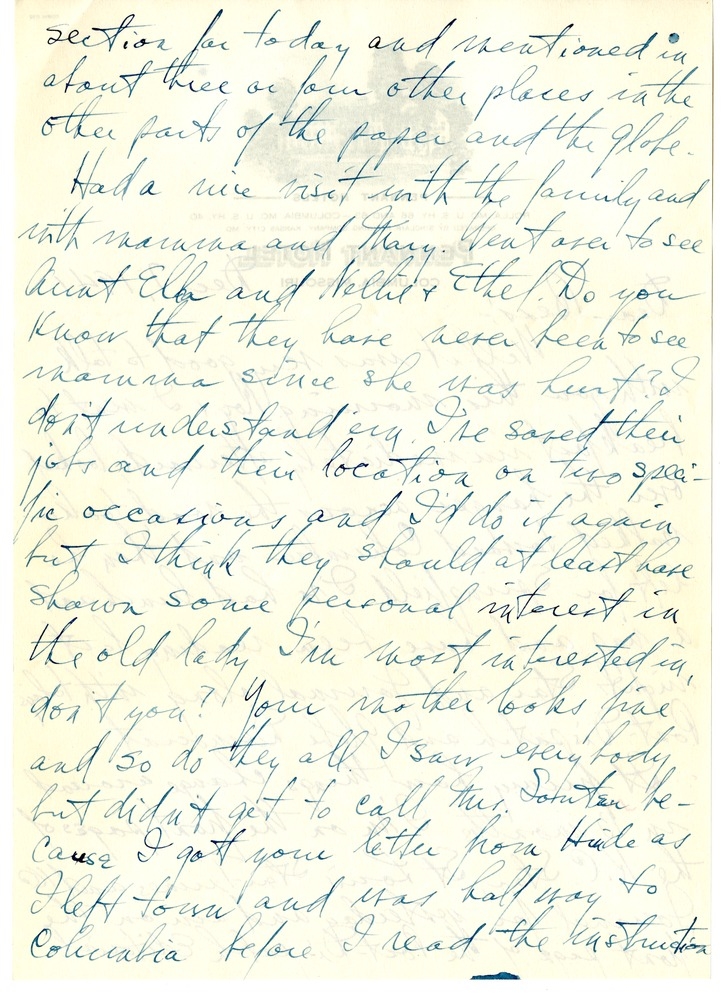 section for today and mentioned in
about three or four other places in the
other parts of the paper and the globe.
Had a nice visit with the family and
with mamma and Mary. Went over to see
Aunt Ella and Nellie & Ethel. Do you
know that they have never been to see
mamma since she was hurt? I
don't understand em. I've saved their
jobs and their location on two speci-
fic occasions and I'd do it again
but I think they should at least have
shown some personal interest in
the old lady I'm most interested in,
don't you? Your mother looks fine
and so do they all. I saw everybody
but didn't get to call Mrs. Souter be-
cause I got your letter from Hinde as
I left town and was half way to
Columbia before I read the instruction